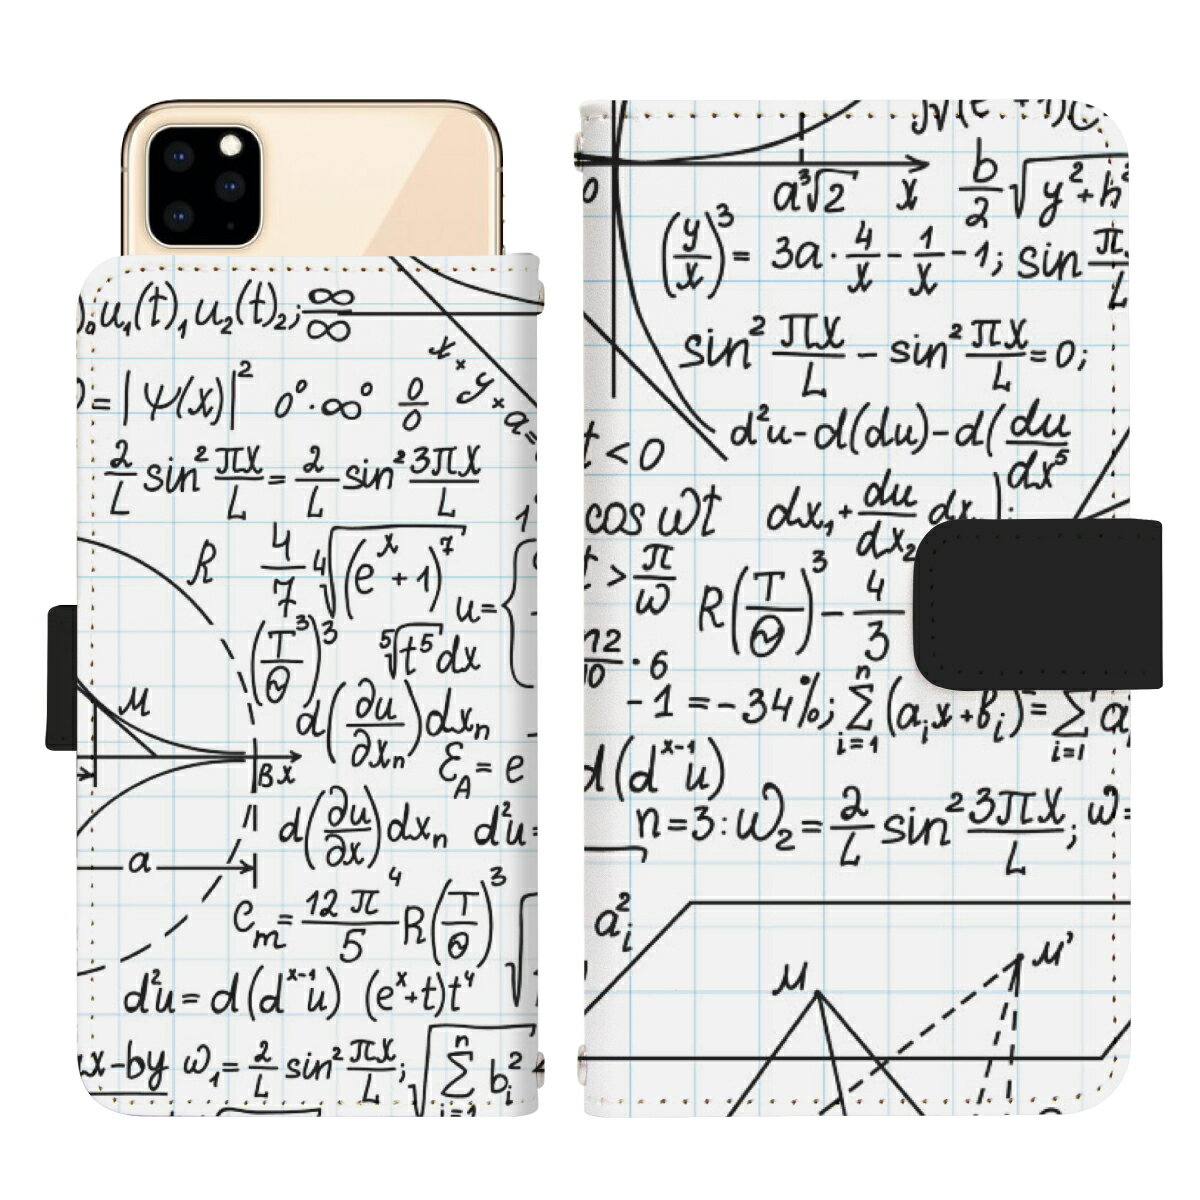 u₁(t)₁ u₂(t)₂; ∞/∞
x × y × a =
= |ψ(x)|² 0⁰·∞⁰ 0/0
2/L sin² πx/L = 2/L sin² 3πx/L
R 4/7 ⁴√(eˣ+1)⁷
u= {
(T³/Θ)³ ⁵√t⁵ dx
M d(∂u/∂xₙ)dxₙ
Ɛ_A = e
B x
d(∂u/∂x)dxₙ d²u=
a
C_m = 12π⁴/5 R(T/Θ)³
d²u = d(dˣ⁻¹u) (eˣ+t)t⁴
x-by ω₁ = 2/L sin² πx/L; √∑ⁿᵢ₌₁ bᵢ²
0 a³√2 x b/2 √y²+h²
(y/x)³ = 3a·4/x - 1/x -1; sin π/L
sin² πx/L - sin² πx/L = 0;
t<0 d²u-d(du)-d(du/dx⁵
cos ωt dx₁+du/dx₂ dx
t > π/ω R(T/Θ)³ - 4/3
12/10 · 6
-1 = -34%; ∑ⁿᵢ₌₁(aᵢx+bᵢ) = ∑ᵢ₌₁ a
d(dˣ⁻¹u)
n=3: ω₂ = 2/L sin² 3πx/L; ω=
aᵢ²
M M'